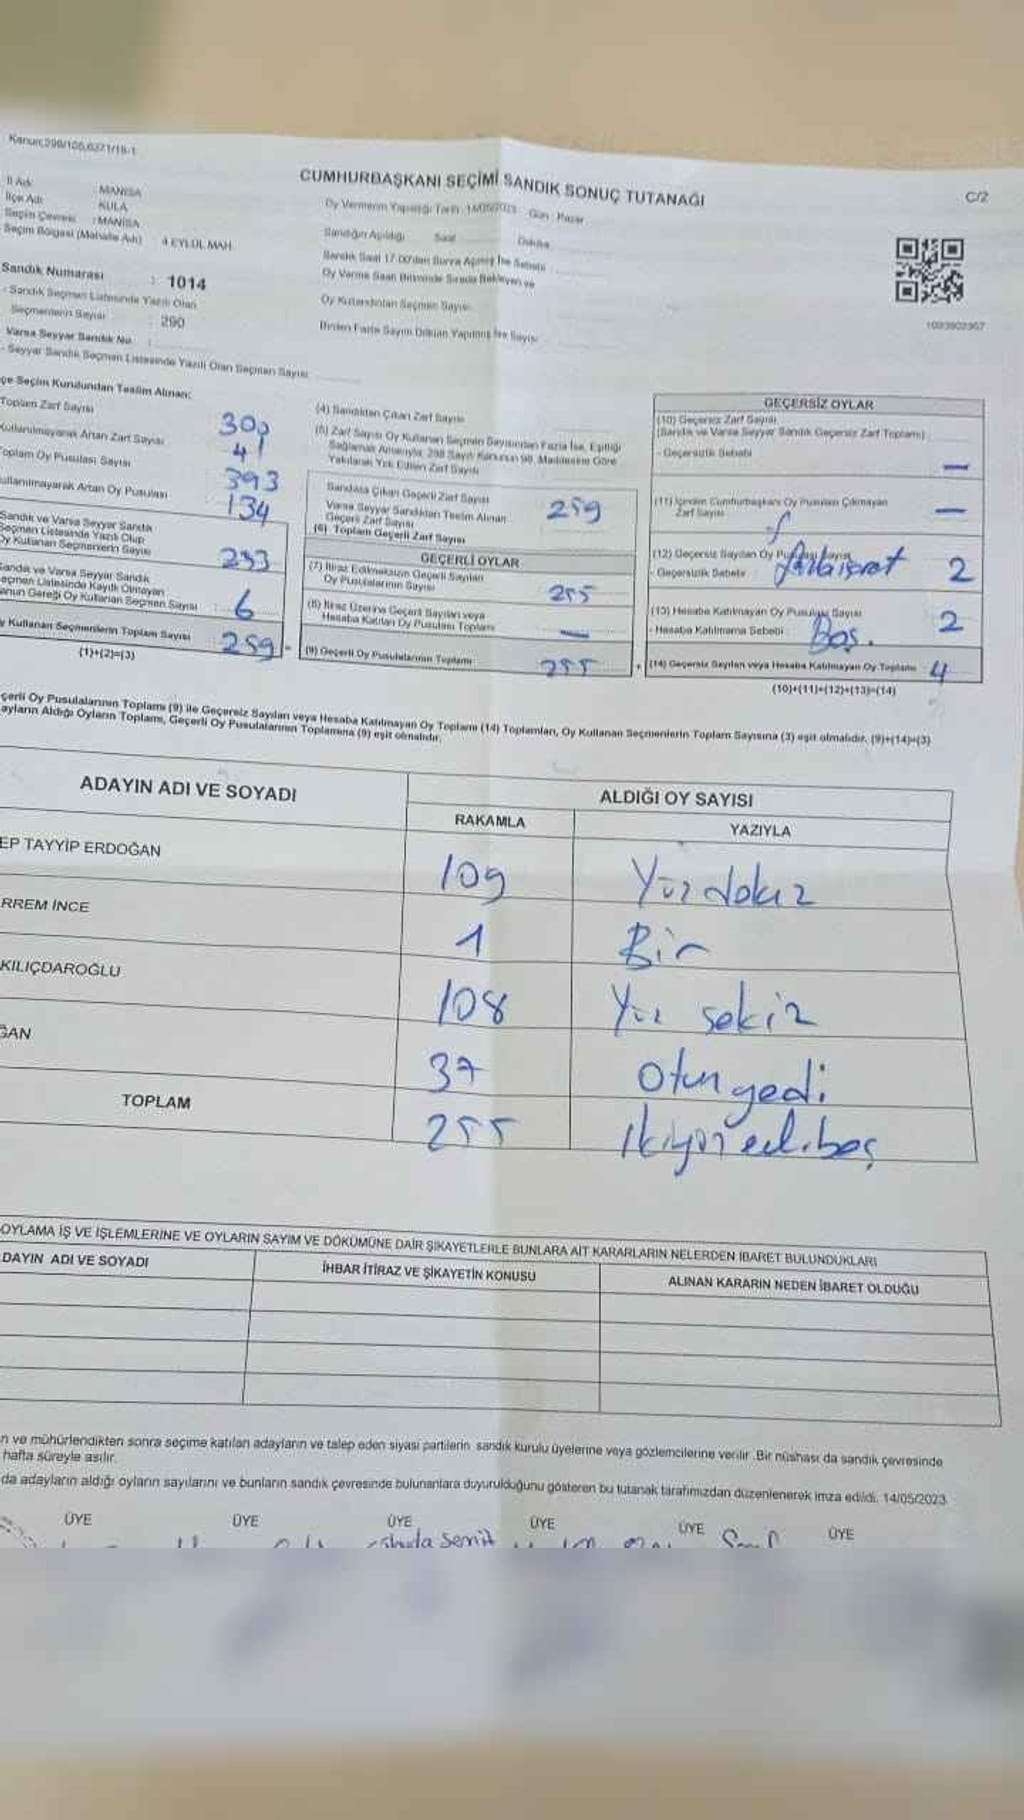 Kanun:298/105,6271/18-1
CUMHURBAŞKANI SEÇİMİ SANDIK SONUÇ TUTANAĞI
C/2
İl Adı : MANİSA
İlçe Adı : KULA
Seçim Çevresi : MANİSA
Seçim Bölgesi (Mahalle Adı) 4 EYLÜL MAH.
Sandık Numarası : 1014
- Sandık Seçmen Listesinde Yazılı Olan
Seçmenlerin Sayısı : 290
Varsa Seyyar Sandık No :
- Seyyar Sandık Seçmen Listesinde Yazılı Olan Seçmen Sayısı
Oy Vermenin Yapıldığı Tarih : 14/05/2023 Gün : Pazar
Sandığın Açıldığı Saat Dakika
Sandık Saat 17.00'den Sonra Açılmış İse Sebebi
Oy Verme Saati Bitiminde Sırada Bekleyen ve
Oy Kullandırılan Seçmen Sayısı
Birden Fazla Sayım Döküm Yapılmış İse Sayısı
1093902367
çe Seçim Kurulundan Teslim Alınan:
Toplam Zarf Sayısı 300
Kullanılmayarak Artan Zarf Sayısı 41
Toplam Oy Pusulası Sayısı 393
ullanılmayarak Artan Oy Pusulası 134
Sandık ve Varsa Seyyar Sandık
Seçmen Listesinde Yazılı Olup
Oy Kullanan Seçmenlerin Sayısı 253
Sandık ve Varsa Seyyar Sandık
eçmen Listesinde Kayıtlı Olmayan
anun Gereği Oy Kullanan Seçmen Sayısı 6
y Kullanan Seçmenlerin Toplam Sayısı 259
(1)+(2)=(3)
(4) Sandıktan Çıkan Zarf Sayısı
(5) Zarf Sayısı Oy Kullanan Seçmen Sayısından Fazla İse, Eşitliği
Sağlamak Amacıyla, 298 Sayılı Kanunun 98. Maddesine Göre
Yakılarak Yok Edilen Zarf Sayısı
Sandıkta Çıkan Geçerli Zarf Sayısı
Varsa Seyyar Sandıktan Teslim Alınan
Geçerli Zarf Sayısı
(6) Toplam Geçerli Zarf Sayısı
259
GEÇERLİ OYLAR
(7) İtiraz Edilmeksizin Geçerli Sayılan
Oy Pusulalarının Sayısı 255
(8) İtiraz Üzerine Geçerli Sayılan veya
Hesaba Katılan Oy Pusulası Toplamı —
(9) Geçerli Oy Pusulalarının Toplamı 255
GEÇERSİZ OYLAR
(10) Geçersiz Zarf Sayısı
(Sandık ve Varsa Seyyar Sandık Geçersiz Zarf Toplamı)
- Geçersizlik Sebebi —
(11) İçinden Cumhurbaşkanı Oy Pusulası Çıkmayan
Zarf Sayısı —
(12) Geçersiz Sayılan Oy Pusulası Sayısı
- Geçersizlik Sebebi : 2
(13) Hesaba Katılmayan Oy Pusulası Sayısı
- Hesaba Katılmama Sebebi : Boş. 2
(14) Geçersiz Sayılan veya Hesaba Katılmayan Oy Toplamı 4
(10)+(11)+(12)+(13)=(14)
çerli Oy Pusulalarının Toplamı (9) ile Geçersiz Sayılan veya Hesaba Katılmayan Oy Toplamı (14) Toplamları, Oy Kullanan Seçmenlerin Toplam Sayısına (3) eşit olmalıdır. (9)+(14)=(3)
ayların Aldığı Oyların Toplamı, Geçerli Oy Pusulalarının Toplamına (9) eşit olmalıdır.
ADAYIN ADI VE SOYADI
ALDIĞI OY SAYISI
RAKAMLA YAZIYLA
EP TAYYİP ERDOĞAN 109 Yüz dokuz
RREM İNCE 1 Bir
KILIÇDAROĞLU 108 Yüz sekiz
ĞAN 37 Otuz yedi
TOPLAM 255 İkiyüz elli beş
OYLAMA İŞ VE İŞLEMLERİNE VE OYLARIN SAYIM VE DÖKÜMÜNE DAİR ŞİKAYETLERLE BUNLARA AİT KARARLARIN NELERDEN İBARET BULUNDUKLARI
DAYIN ADI VE SOYADI İHBAR İTİRAZ VE ŞİKAYETİN KONUSU ALINAN KARARIN NEDEN İBARET OLDUĞU
n ve mühürlendikten sonra seçime katılan adayların ve talep eden siyasi partilerin sandık kurulu üyelerine veya gözlemcilerine verilir .Bir nüshası da sandık çevresinde
hafta süreyle asılır.
da adayların aldığı oyların sayılarını ve bunların sandık çevresinde bulunanlara duyurulduğunu gösteren bu tutanak tarafımızdan düzenlenerek imza edildi. 14/05/2023
ÜYE ÜYE ÜYE ÜYE ÜYE ÜYE